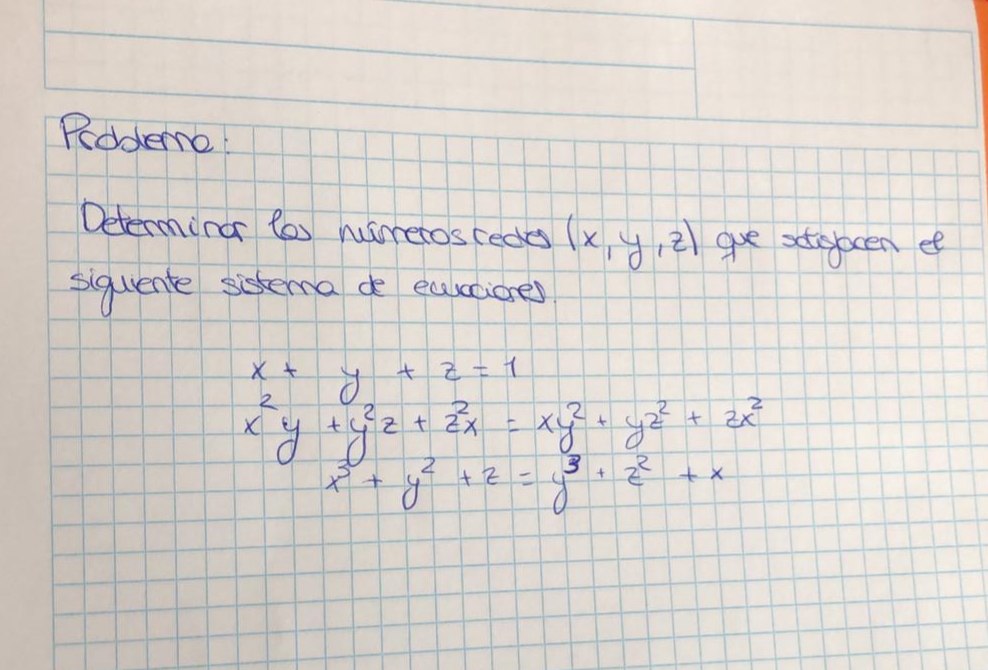 Problema:
Determinar los números reales (x, y, z) que satisfacen el
siguiente sistema de ecuaciones.
x + y + z = 1
x²y + y²z + z²x = xy² + yz² + zx²
x³ + y² + z = y³ + z² + x